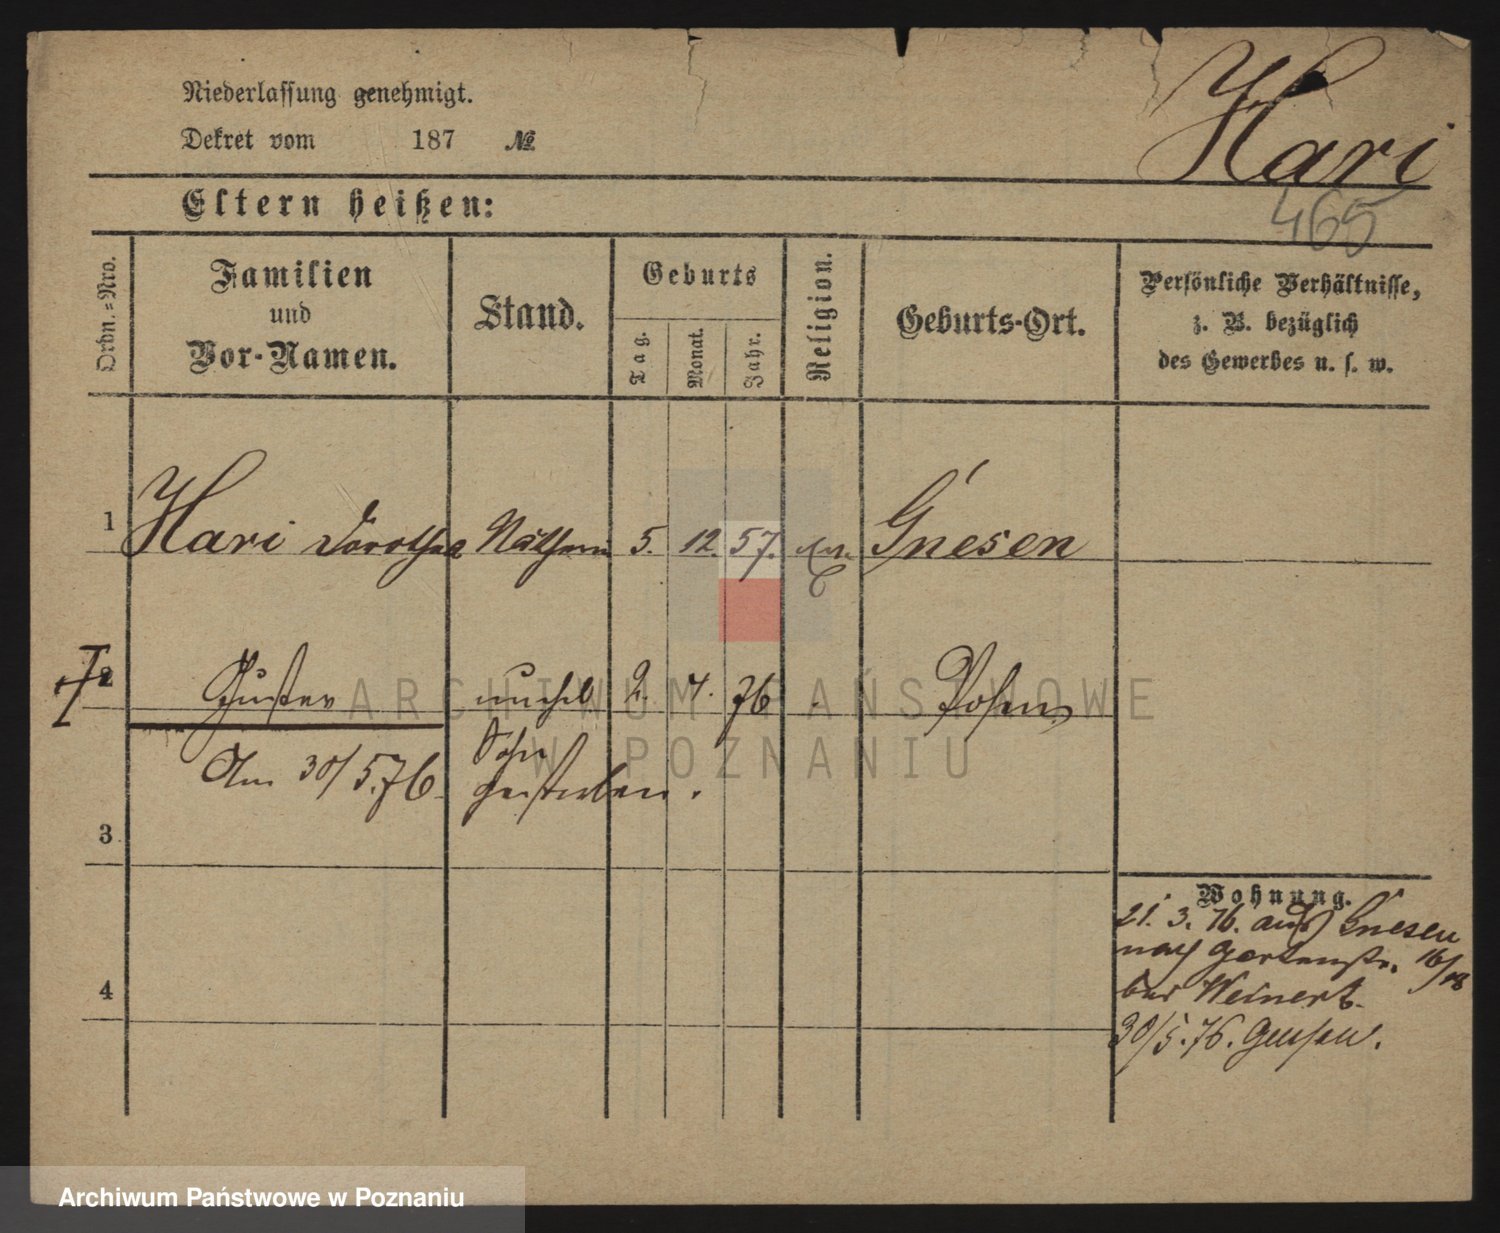 Niederlassung genehmigt.
Dekret vom 187 №
Hari
465
Eltern heißen:
Ordn.-Nro.
Familien
und
Vor-Namen.
Stand.
Geburts
Tag.
Monat.
Jahr.
Religion.
Geburts-Ort.
Persönliche Verhältnisse,
z. B. bezüglich
des Gewerbes u. s. w.
1 Hari Dorothea Näherin 5. 12. 57. Gnesen
2 Gustav unehl. 2. 4. 76 Posen
Sohn
Am 30/5.76. gestorben.
3
4
Wohnung.
21. 3. 76. aus Gnesen
nach Gartenstr. 16/18
bei Weinert.
30/5. 76. Gnesen.
ARCHIWUM PAŃSTWOWE
W POZNANIU
Archiwum Państwowe w Poznaniu